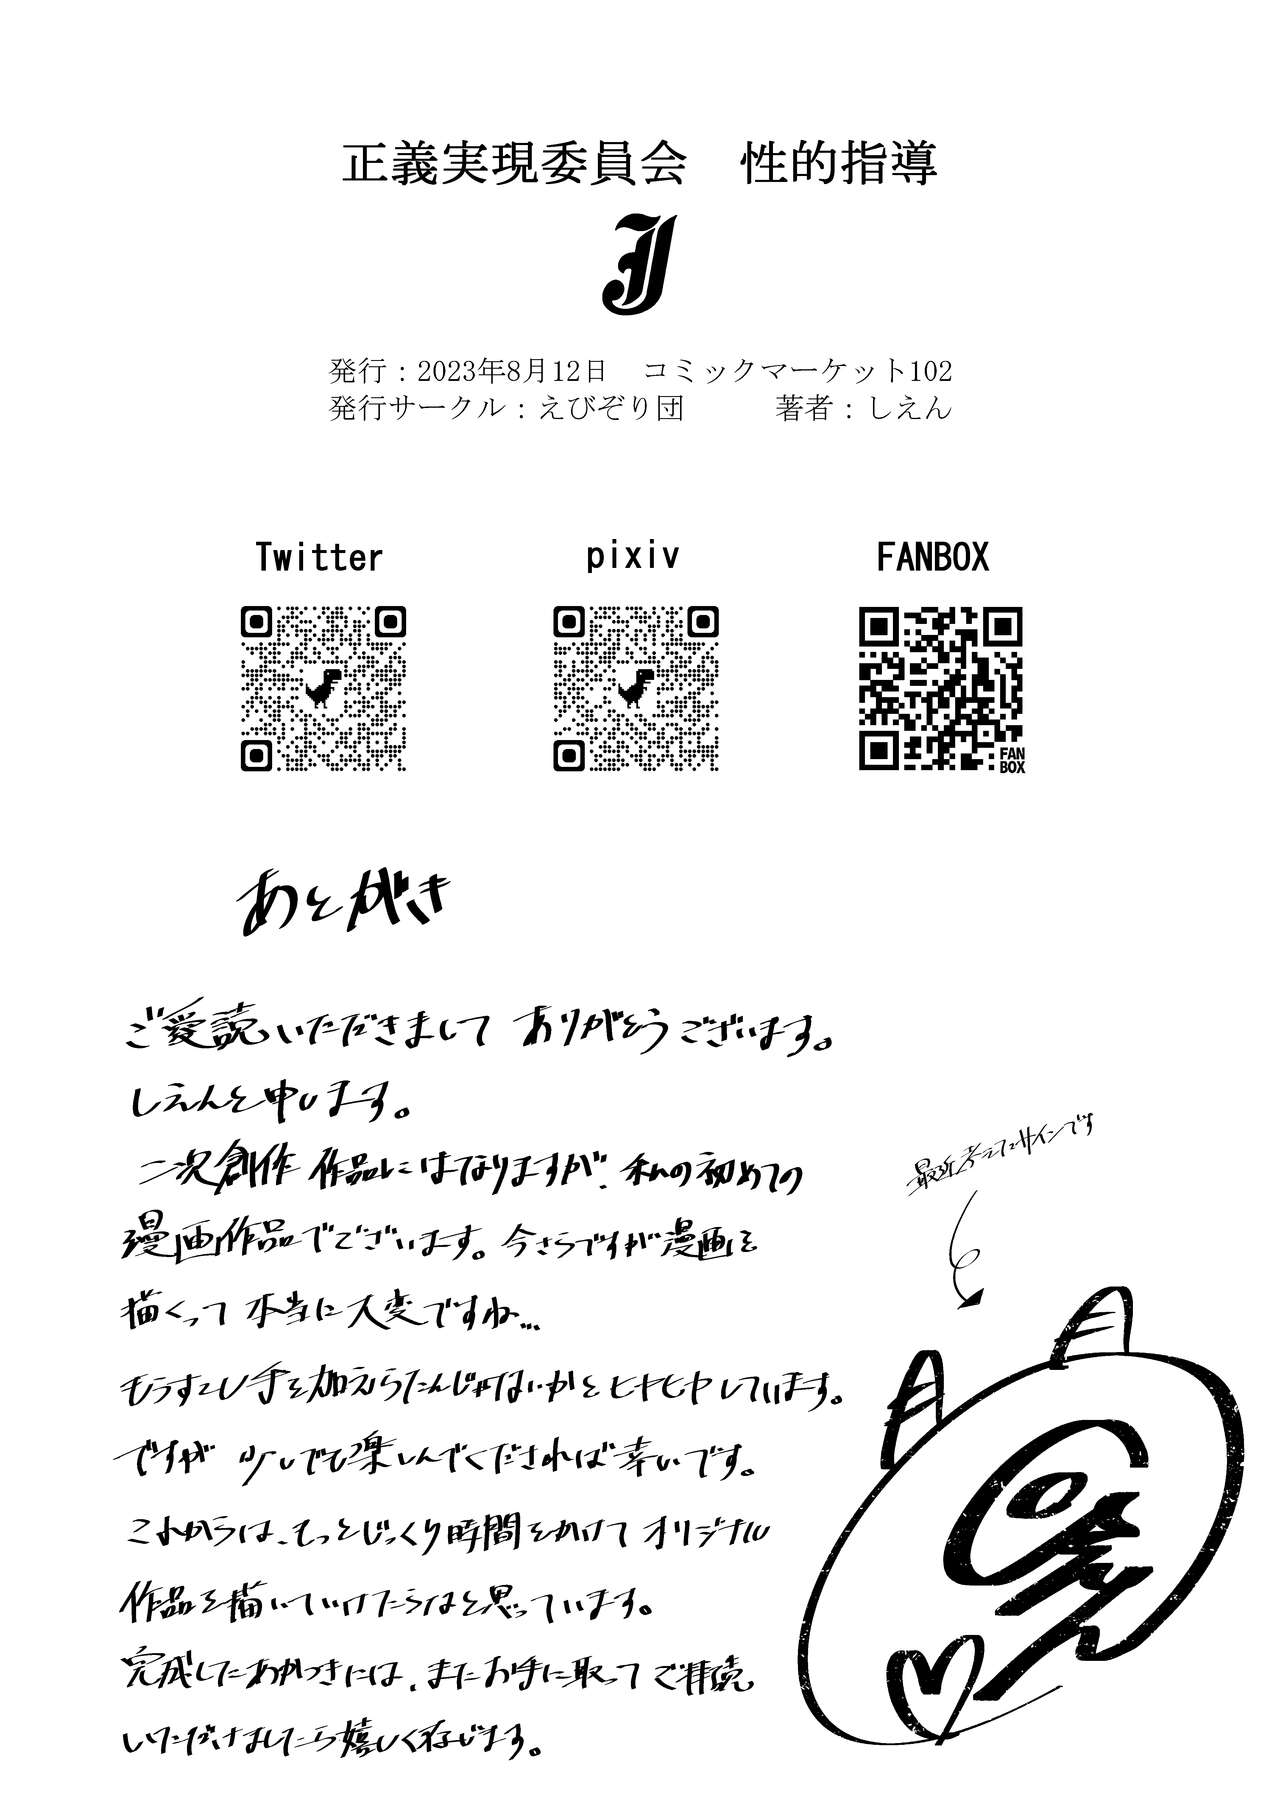 正義実現委員会　性的指導
J
発行：2023年8月12日　コミックマーケット102
発行サークル：えびぞり団　　　著者：しえん
Twitter
pixiv
FANBOX
FAN
BOX
あとがき
ご愛読いただきまして ありがとうございます。
しえんと申します。
二次創作 作品にはなりますが、私の初めての
漫画作品でございます。今さらですが漫画を
描くって 本当に大変ですね…
もうすこし手を加えらたんじゃないかとヒヤヒヤしています。
ですが 少しでも楽しんでくだされば幸いです。
これからは、もっとじっくり時間をかけて オリジナル
作品を描いていけたらなと思っています。
完成したあかつきには、またお手に取って ご拝読
いただけましたら嬉しく存じます。
最近考えてるサインです
しえん